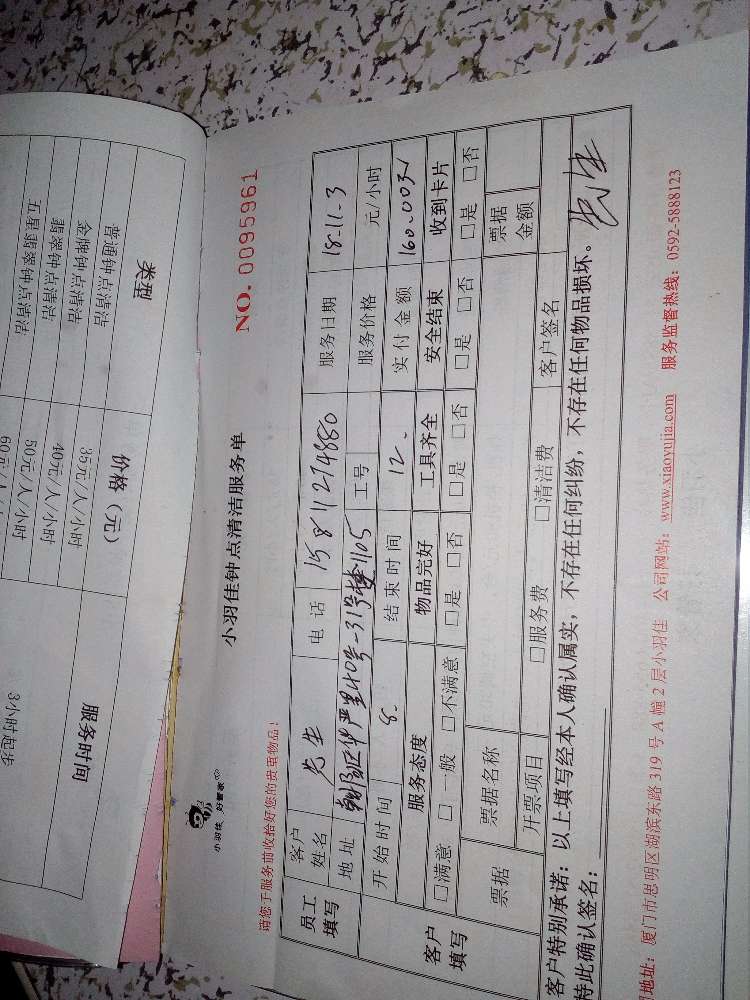 类型 价格（元） 服务时间
普通钟点清洁 35元/人/小时 3小时起步
金牌钟点清洁 40元/人/小时
翡翠钟点清洁 50元/人/小时
五星翡翠钟点清洁 60元/人/
NO. 0095961
小羽佳 好管家
小羽佳钟点清洁服务单
请您于服务前收拾好您的贵重物品！
员工填写 客户姓名 先生 电话 15811214880 服务日期 18-11-3
地址 31号楼1105 工号 服务价格 元/小时
开始时间 8. 结束时间 12. 实付金额 160.00
客户填写 服务态度 物品完好 工具齐全 安全结束 收到卡片
□满意 □一般 □不满意 □是 □否 □是 □否 □是 □否 □是 □否
票据 票据名称 票据金额
开票项目 □服务费 □清洁费 客户签名
客户特别承诺：以上填写经本人确认属实，不存在任何纠纷，不存在任何物品损坏。
特此确认签名：
地址：厦门市思明区湖滨东路 319 号 A 幢 2 层小羽佳 公司网站：www.xiaoyujia.com 服务监督热线：0592-5888123